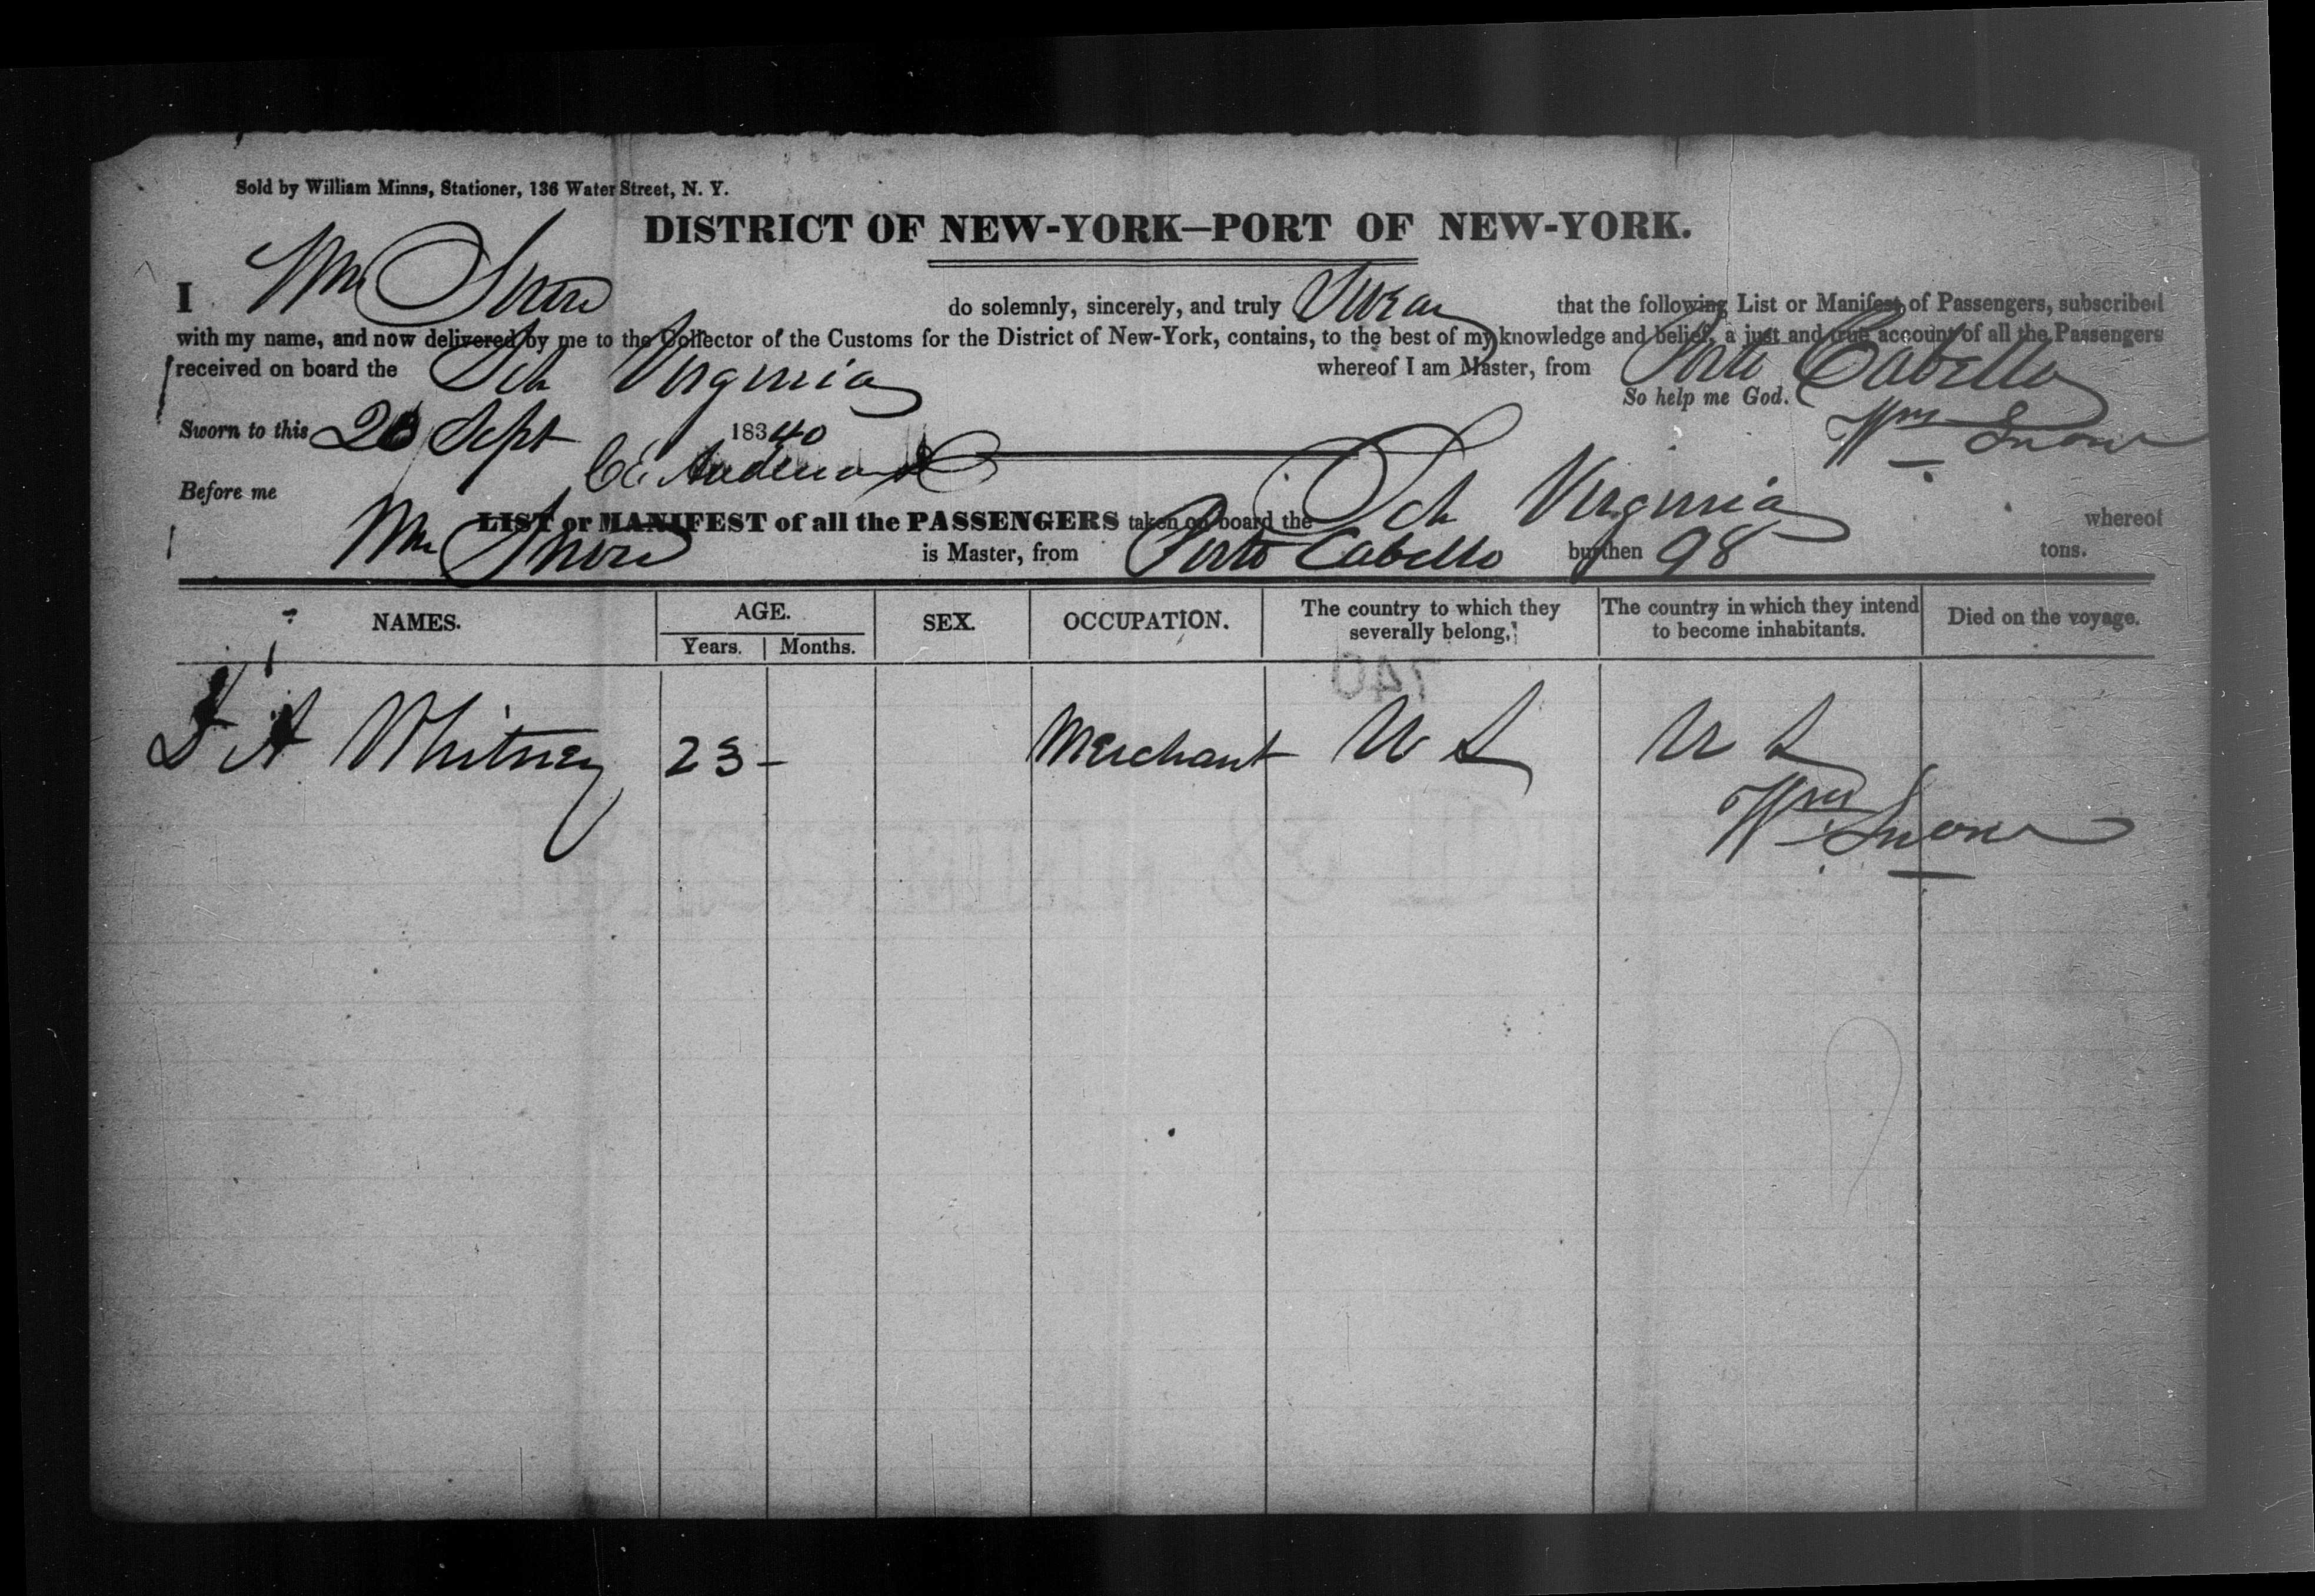 Sold by William Minns, Stationer, 136 Water Street, N. Y.
DISTRICT OF NEW-YORK—PORT OF NEW-YORK.
I Wm Snow do solemnly, sincerely, and truly Swear that the following List or Manifest of Passengers, subscribed
with my name, and now delivered by me to the Collector of the Customs for the District of New-York, contains, to the best of my knowledge and belief, a just and true account of all the Passengers
received on board the Sch Virginia whereof I am Master, from Porto Cabello
So help me God.
Sworn to this Sept 18340 Wm Snow
Before me
LIST or MANIFEST of all the PASSENGERS taken on board the Sch Virginia whereof
Wm Snow is Master, from Porto Cabello burthen 98 tons.
NAMES. AGE. SEX. OCCUPATION. The country to which they severally belong. The country in which they intend to become inhabitants. Died on the voyage.
Years. Months.
740
A Whitney 23 - Merchant U S U S
Wm Snow